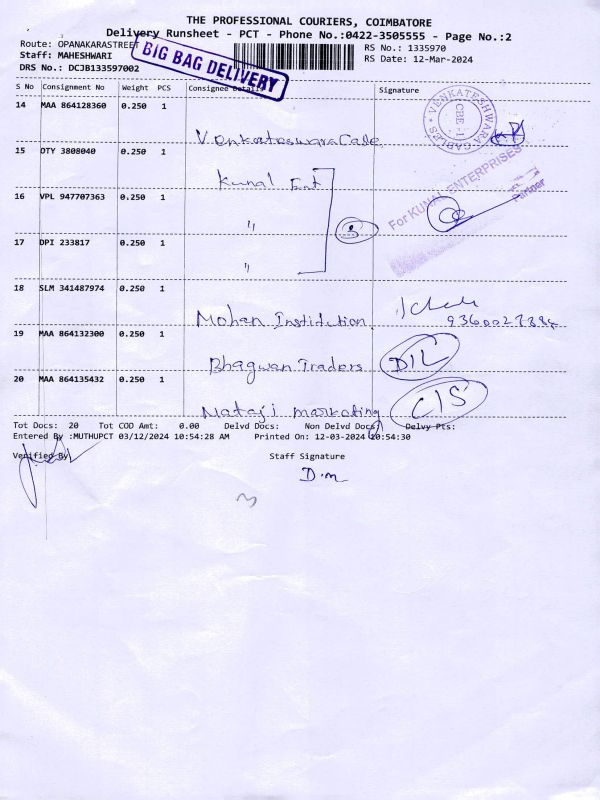 THE PROFESSIONAL COURIERS, COIMBATORE
Delivery Runsheet - PCT - Phone No.:0422-3505555 - Page No.:2
Route: OPANAKARASTREET
RS No.: 1335970
Staff: MAHESHWARI
RS Date: 12-Mar-2024
DRS No.: DCJB133597002
BIG BAG DELIVERY
S No Consignment No Weight PCS Consignee Details Signature
14 MAA 864128360 0.250 1
VENKATESWARA CABLES
CBE-1
15 DTY 3808040 0.250 1
Kunal Ent
For KUNAL ENTERPRISES
Partner
16 VPL 947707363 0.250 1 "
3
17 DPI 233817 0.250 1 "
18 SLM 341487974 0.250 1 Mohan Institution
19 MAA 864132300 0.250 1 Bhagwan Traders D/L
20 MAA 864135432 0.250 1 Nataji marketing C/S
Tot Docs: 20 Tot COD Amt: 0.00 Delvd Docs: Non Delvd Docs: Delvy Pts:
Entered By :MUTHUPCT 03/12/2024 10:54:28 AM Printed On: 12-03-2024 10:54:30
Verified By Staff Signature
D.m